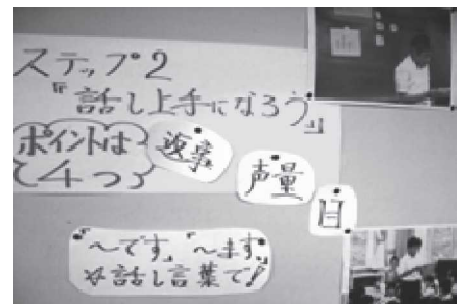 ステップ2
『話し上手になろう』
ポイントは
4つ
返事
声量
目
「～です」「～ます」
※話し言葉で!